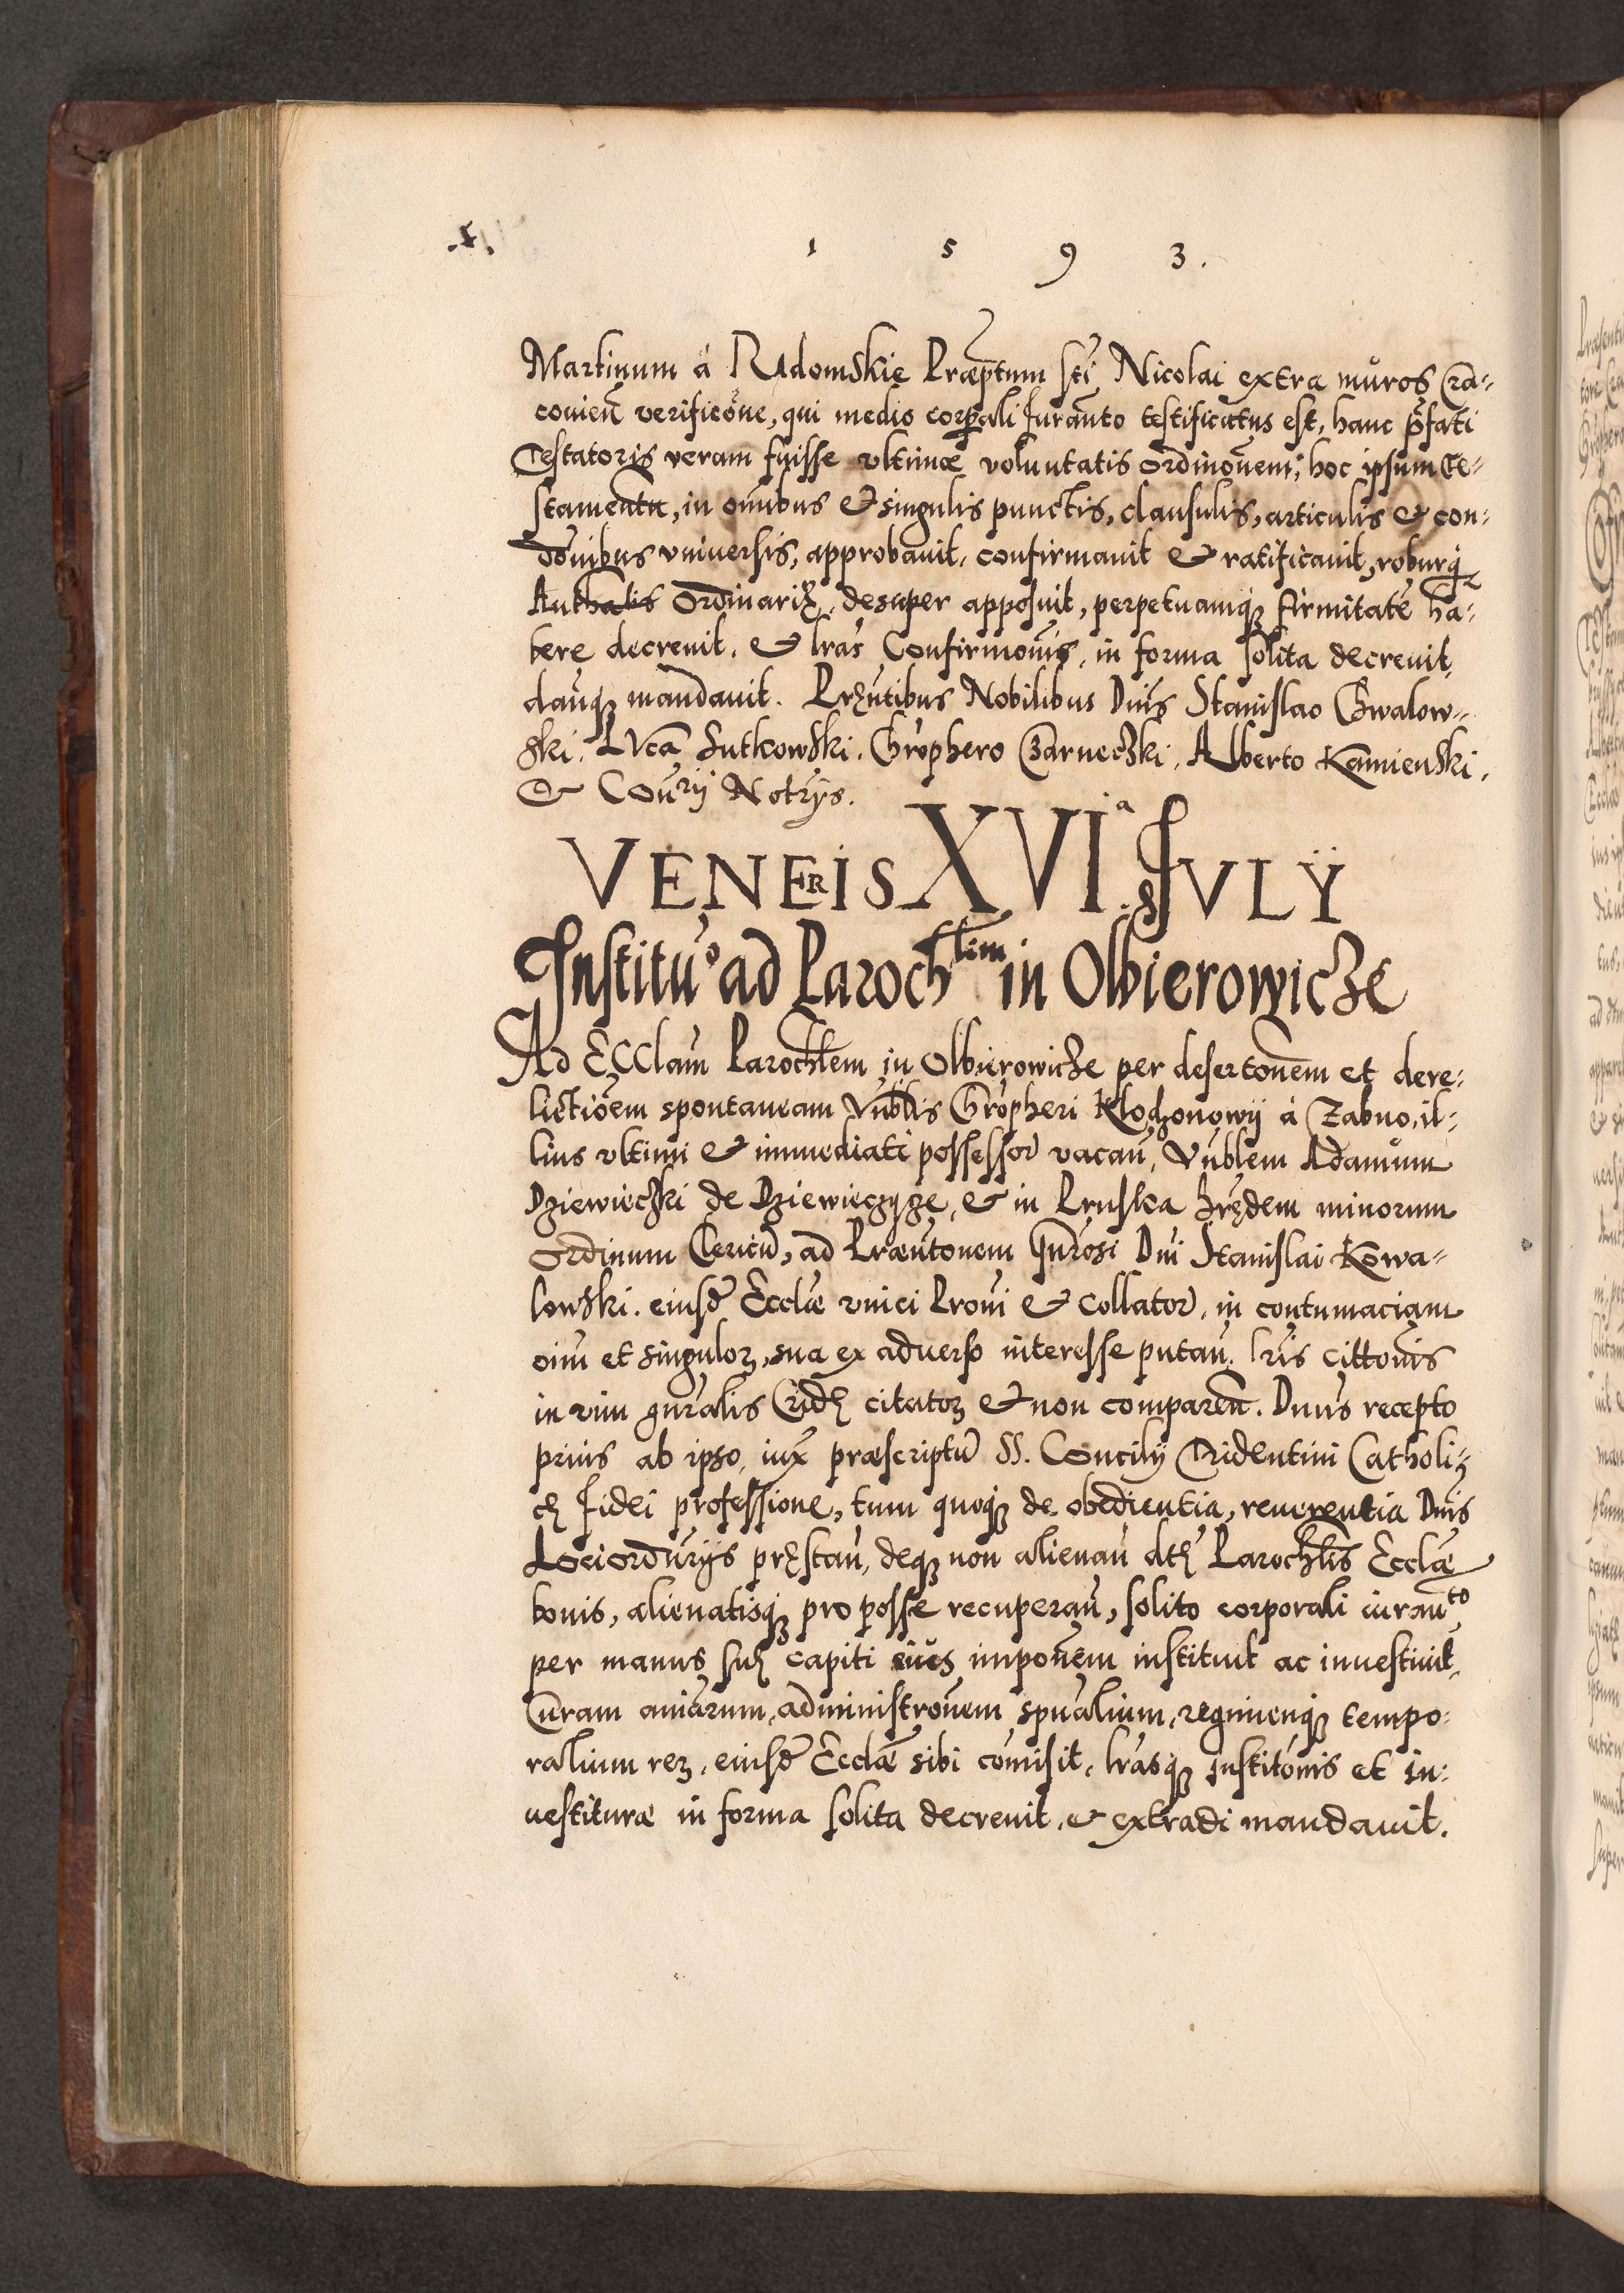 1 5 9 3.
Martinum à Radomskie Præptum Sti Nicolai extra muros Cra-
couien̄ verificōne, qui medio corporali Iuranto testificatus est, hanc p̄fati
Testatoris veram fuisse vltimæ voluntatis ordinōnem, hoc ipsum te-
stamentū, in oīnibus & singulis punctis, clausulis, articulis & con-
dōnibus vniuersis, approbauit, confirmauit & ratificauit, roburq̃
Authalis Ordinarię, desuper apposuit, perpetuamqꝫ firmitatē ha-
bere decreuit. & l̃ras Confirmōnis, in forma solita decreuit,
dariqꝫ mandauit. Pręntibus Nobilibus Dnis Stanislao Chwalow-
ski. Lvca Sutkowski. Chr̃ophero Czarneczki. Alberto Kamienski.
& Cōurij Notrijs.
VENERIS XVIª IVLY
Institũo ad Paroch̃lem in Olbierowicze
Ad Ecclam Paroch̃lem in Olbierowicze per desertōnem et dere-
lictiōem spontaneam Vn̄blis Chr̃opheri Klodzonowij à Zabno, il-
lius vltimi & immediati possessor̃ vacan̄, Vn̄blem Adamum
Dziewieczki de Dziewięczyze, & in Pruska hręd̃em minorum
ordinum Clericũ, ad Præn̄tonem Gn̄rosi Dni Stanislai Kowa-
lowski. eiusd̃ Ecclæ vnici Prōni & Collator̃, in contumaciam
oīm et singuloꝝ, sua ex aduerso interesse putan̄. l̃ris cittōnis
in vim gn̄ralis Cridę citatoꝝ & non comparen̄. Dnus recepto
prius ab ipso, iux̃ præscriptũ SS. Concilij Tridentini Catholi-
cę Fidei professione, tum quoqꝫ de obedientia, reuerentia Dnis
Lociordn̄rijs pręstan̄, deqꝫ non alienan̄ dtę Paroch̃lis Ecclæ
bonis, alienatisqꝫ pro posse recuperan̄, solito corporali iuran̄to
per manus suę capiti eius impon̄em instituit ac inuestiuit,
Curam an̄iarum, administrōnem spūalium, regimenqꝫ tempo-
ralium reꝝ, eiusd̃ Ecclæ sibi cōmisit, l̃rasqꝫ institōnis et in-
uestituræ in forma solita decreuit, & extradi mandauit.